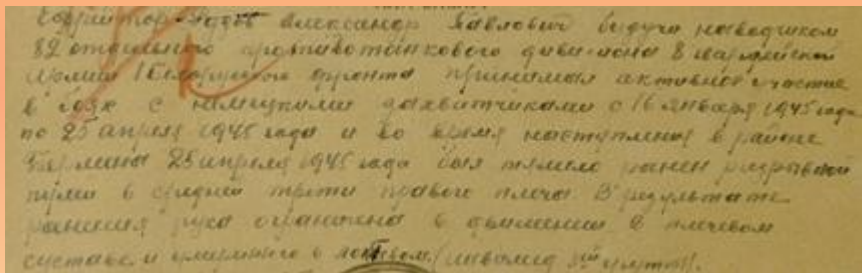 Ефрейтор Александр Павлович будучи наводчиком
82 отдельного противотанкового дивизиона 8 гвардейской
Армии 1 Белорусского фронта принимал активное участие
в боях с немецкими захватчиками с 16 января 1945 года
по 25 апреля 1945 года и во время наступления в районе
Берлина 25 апреля 1945 года был тяжело ранен разрывной
пулей в средней трети правого плеча. В результате
ранения рука ограничена в движении в плечевом
суставе и в локтевом. (инвалид 3ей группы).